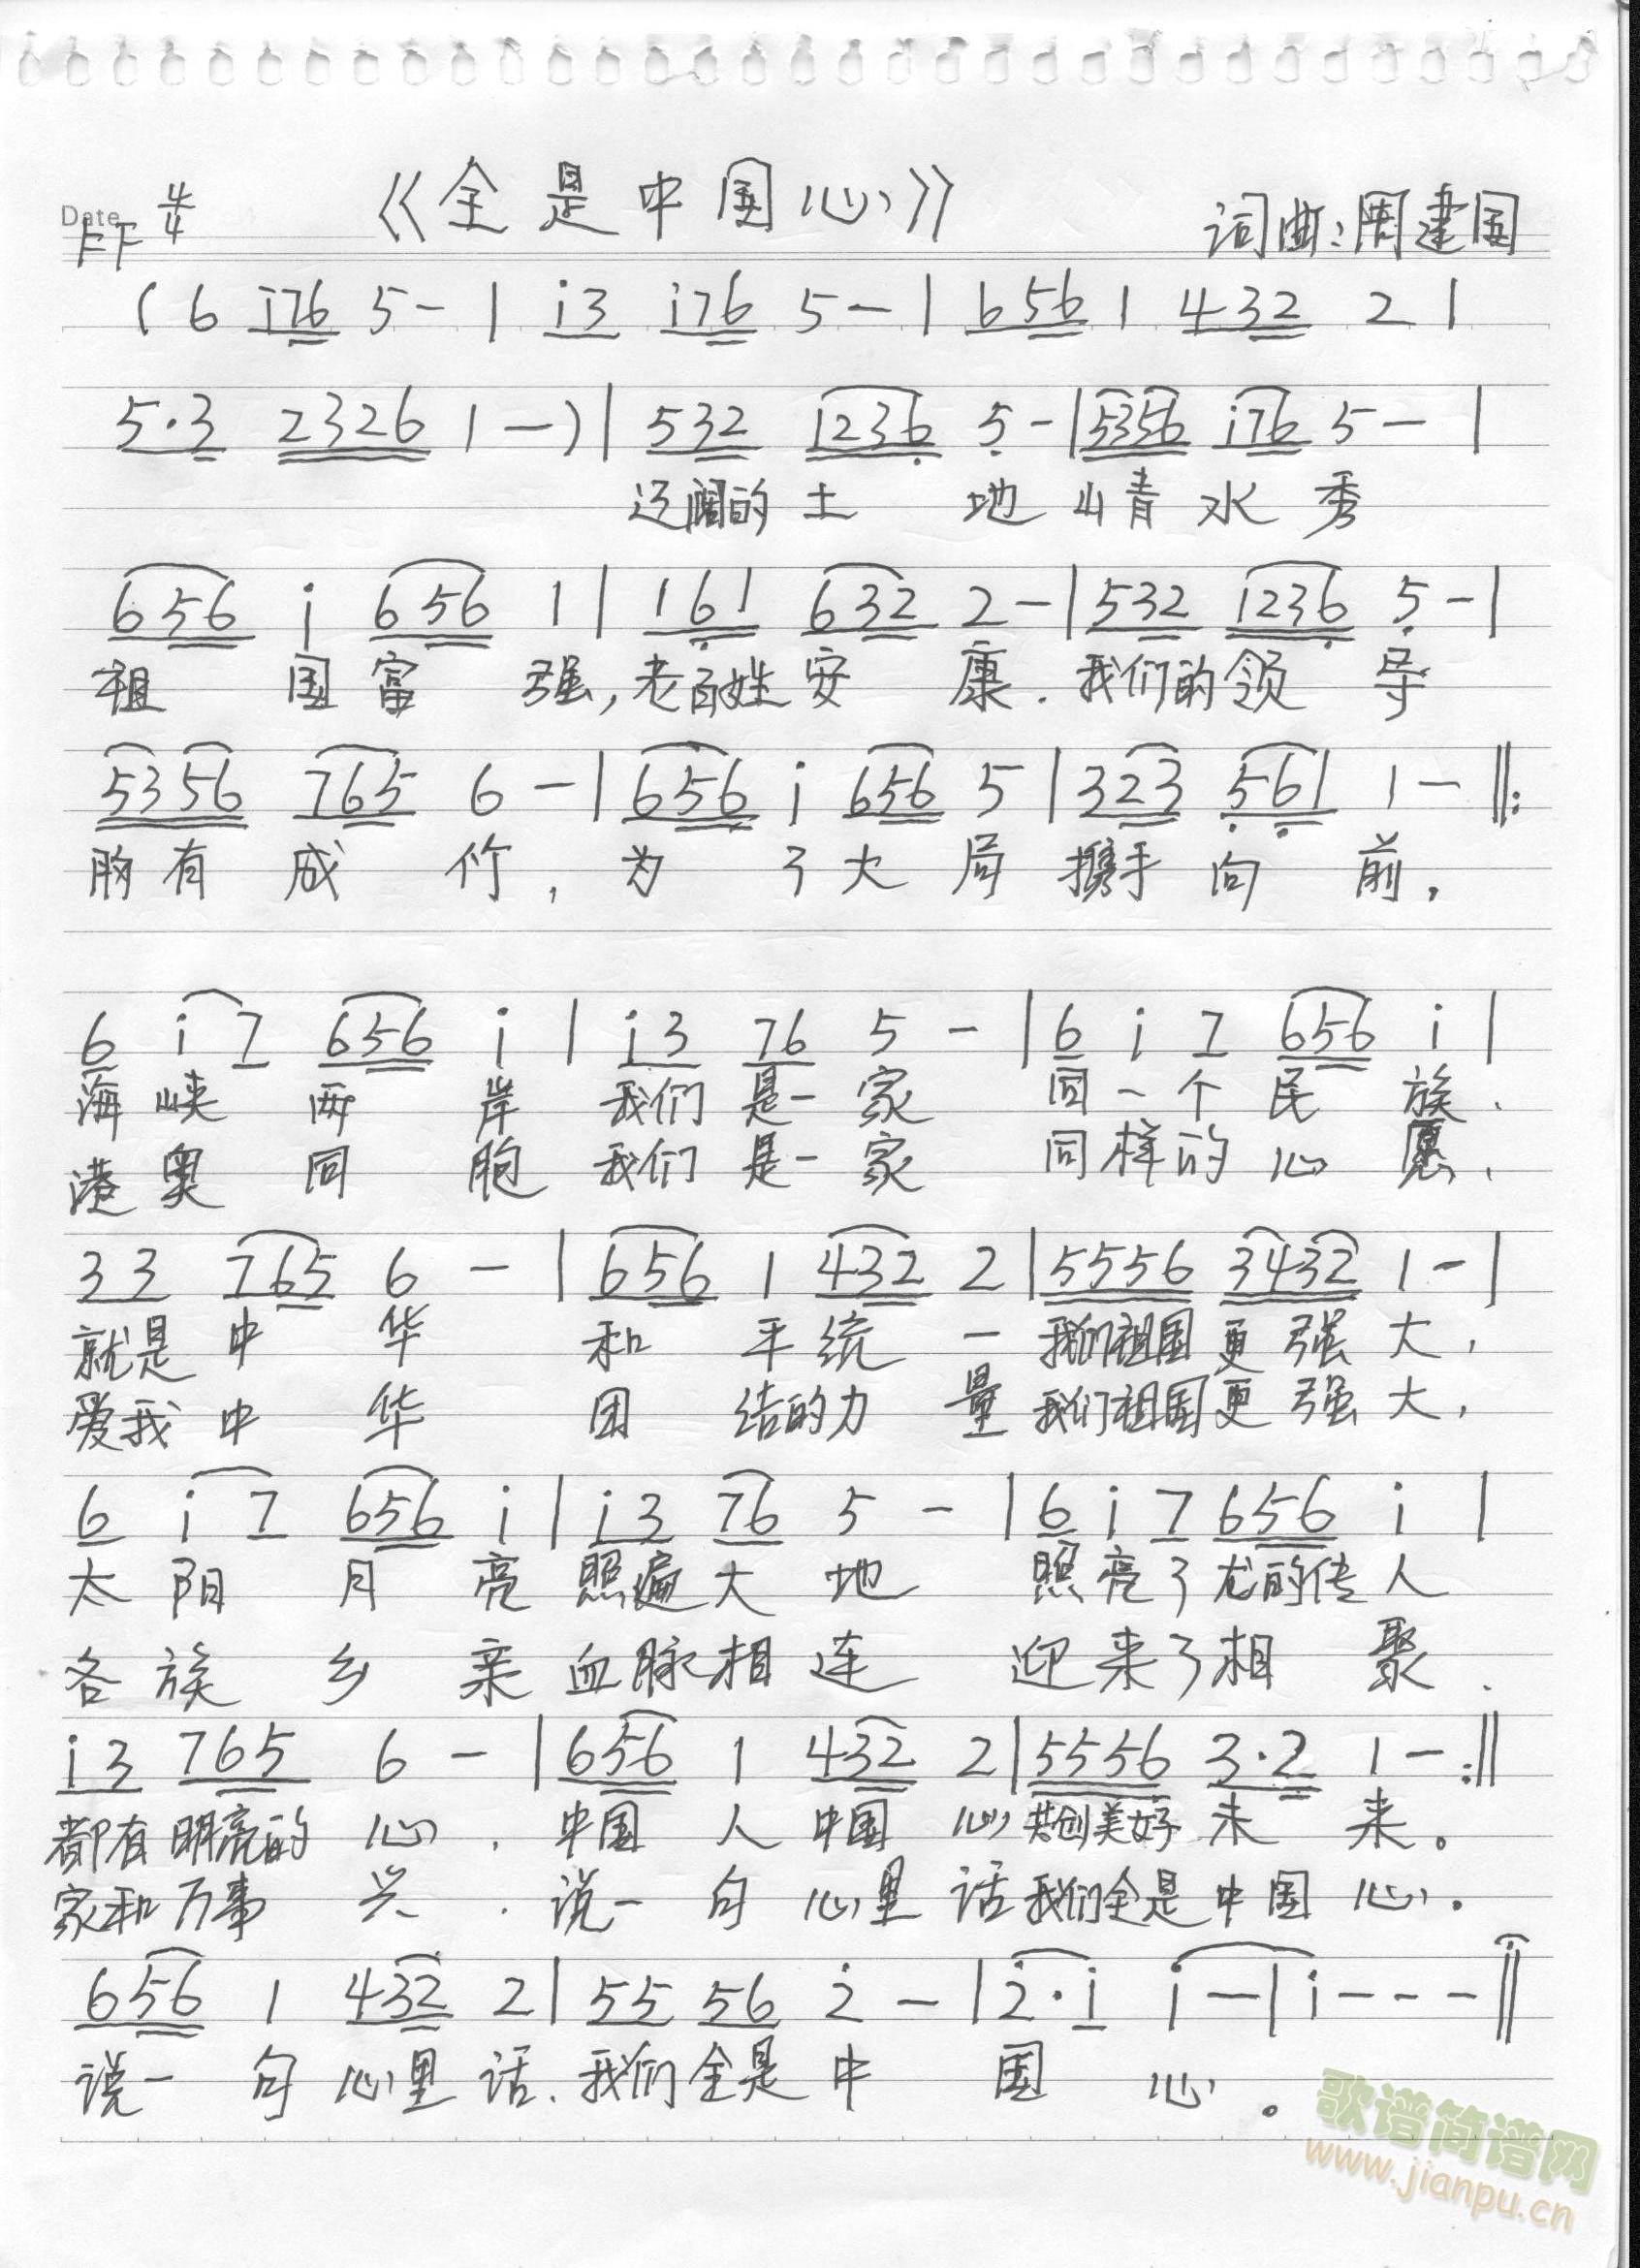 Date
F下 4/4 《全是中国心》 词曲:周建国
( 6 i76 5 - | i3 i76 5 - | 656 1 432 2 |
5·3 2326 1 - ) | 532 1236 5 - | 5356 i76 5 - |
辽阔的土地山青水秀
656 i 656 1 | 161 632 2 - | 532 1236 5 - |
祖国富强,老百姓安康.我们的领导
5356 765 6 - | 656 i 656 5 | 323 561 1 - ‖:
胸有成竹,为了大局携手向前,
6 i 7 656 i | i3 76 5 - | 6 i 7 656 i |
海峡两岸我们是一家 同一个民族、
港奥同胞我们是一家 同样的心愿、
33 765 6 - | 656 1 432 2 | 5556 3432 1 - |
就是中华 和平统一我们祖国更强大,
爱我中华 团结的力量我们祖国更强大,
6 i 7 656 i | i3 76 5 - | 6 i 7 656 i |
太阳月亮照遍大地 照亮了龙的传人
各族乡亲血脉相连 迎来了相聚、
i3 765 6 - | 656 1 432 2 | 5556 3·2 1 - :‖
都有明亮的心、中国人中国心共创美好未来。
家和万事兴.说一句心里话我们全是中国心。
656 1 432 2 | 55 56 2 - | 2·i i - | i - - - ‖
说一句心里话、我们全是中国心。
歌谱简谱网
www.jianpu.cn